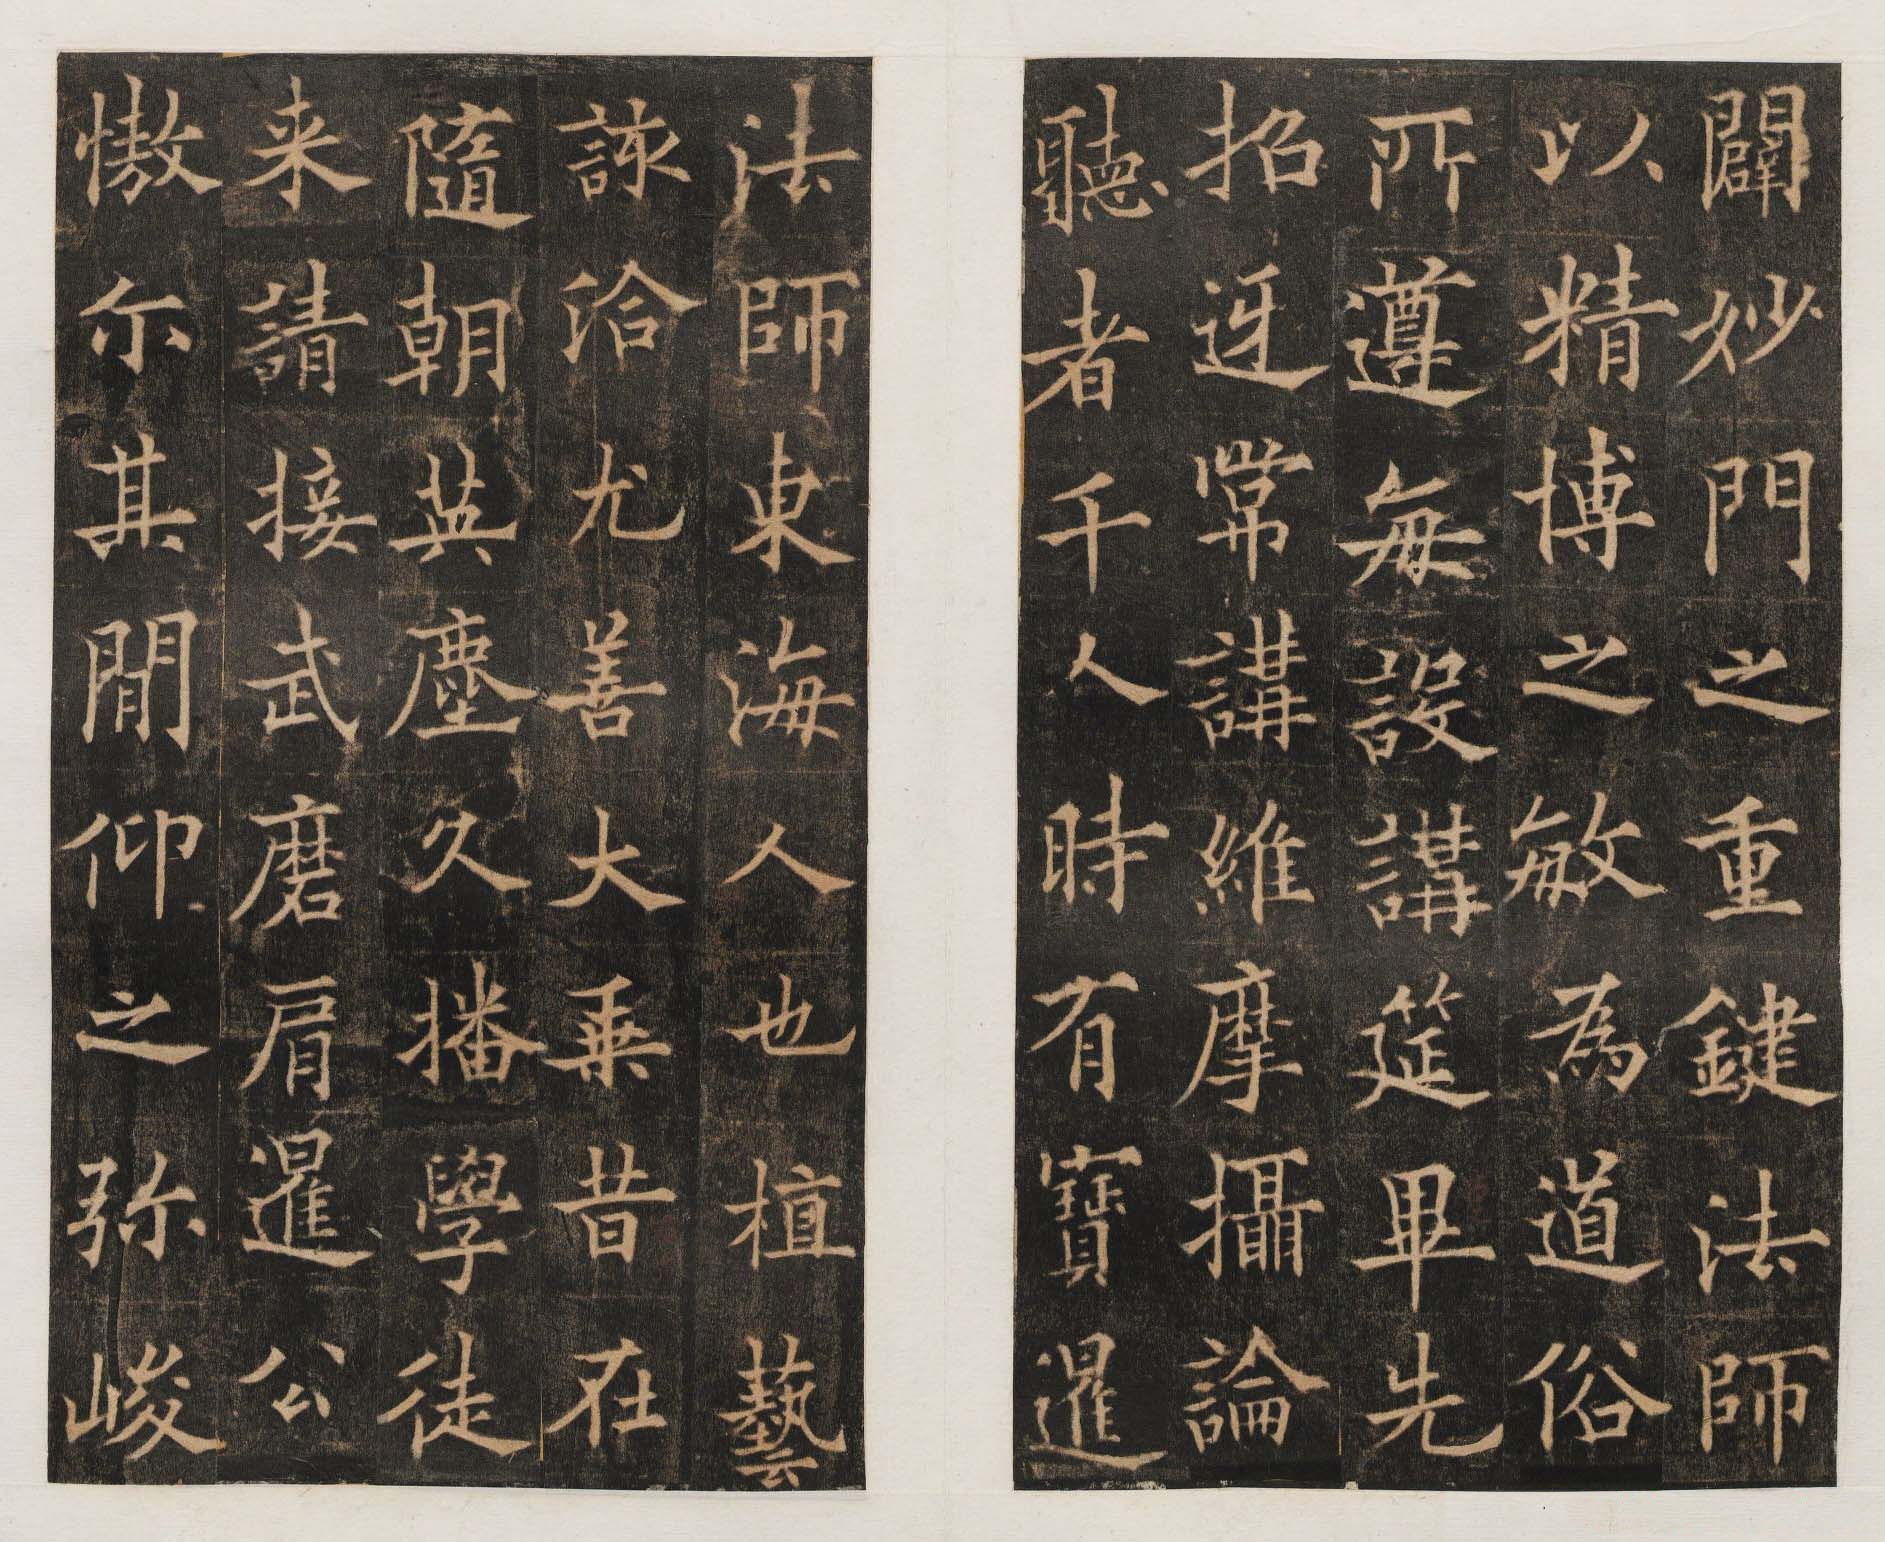 闢妙門之重鍵法師
以精博之敏為道俗
所遵每設講筵畢先
招迓常講維摩攝論
聽者千人時有寶暹
法師東海人也植藝
該洽尤善大乗昔在
隨朝英塵久播學徒
来請接武磨肩暹公
慠尒其閒仰之弥峻